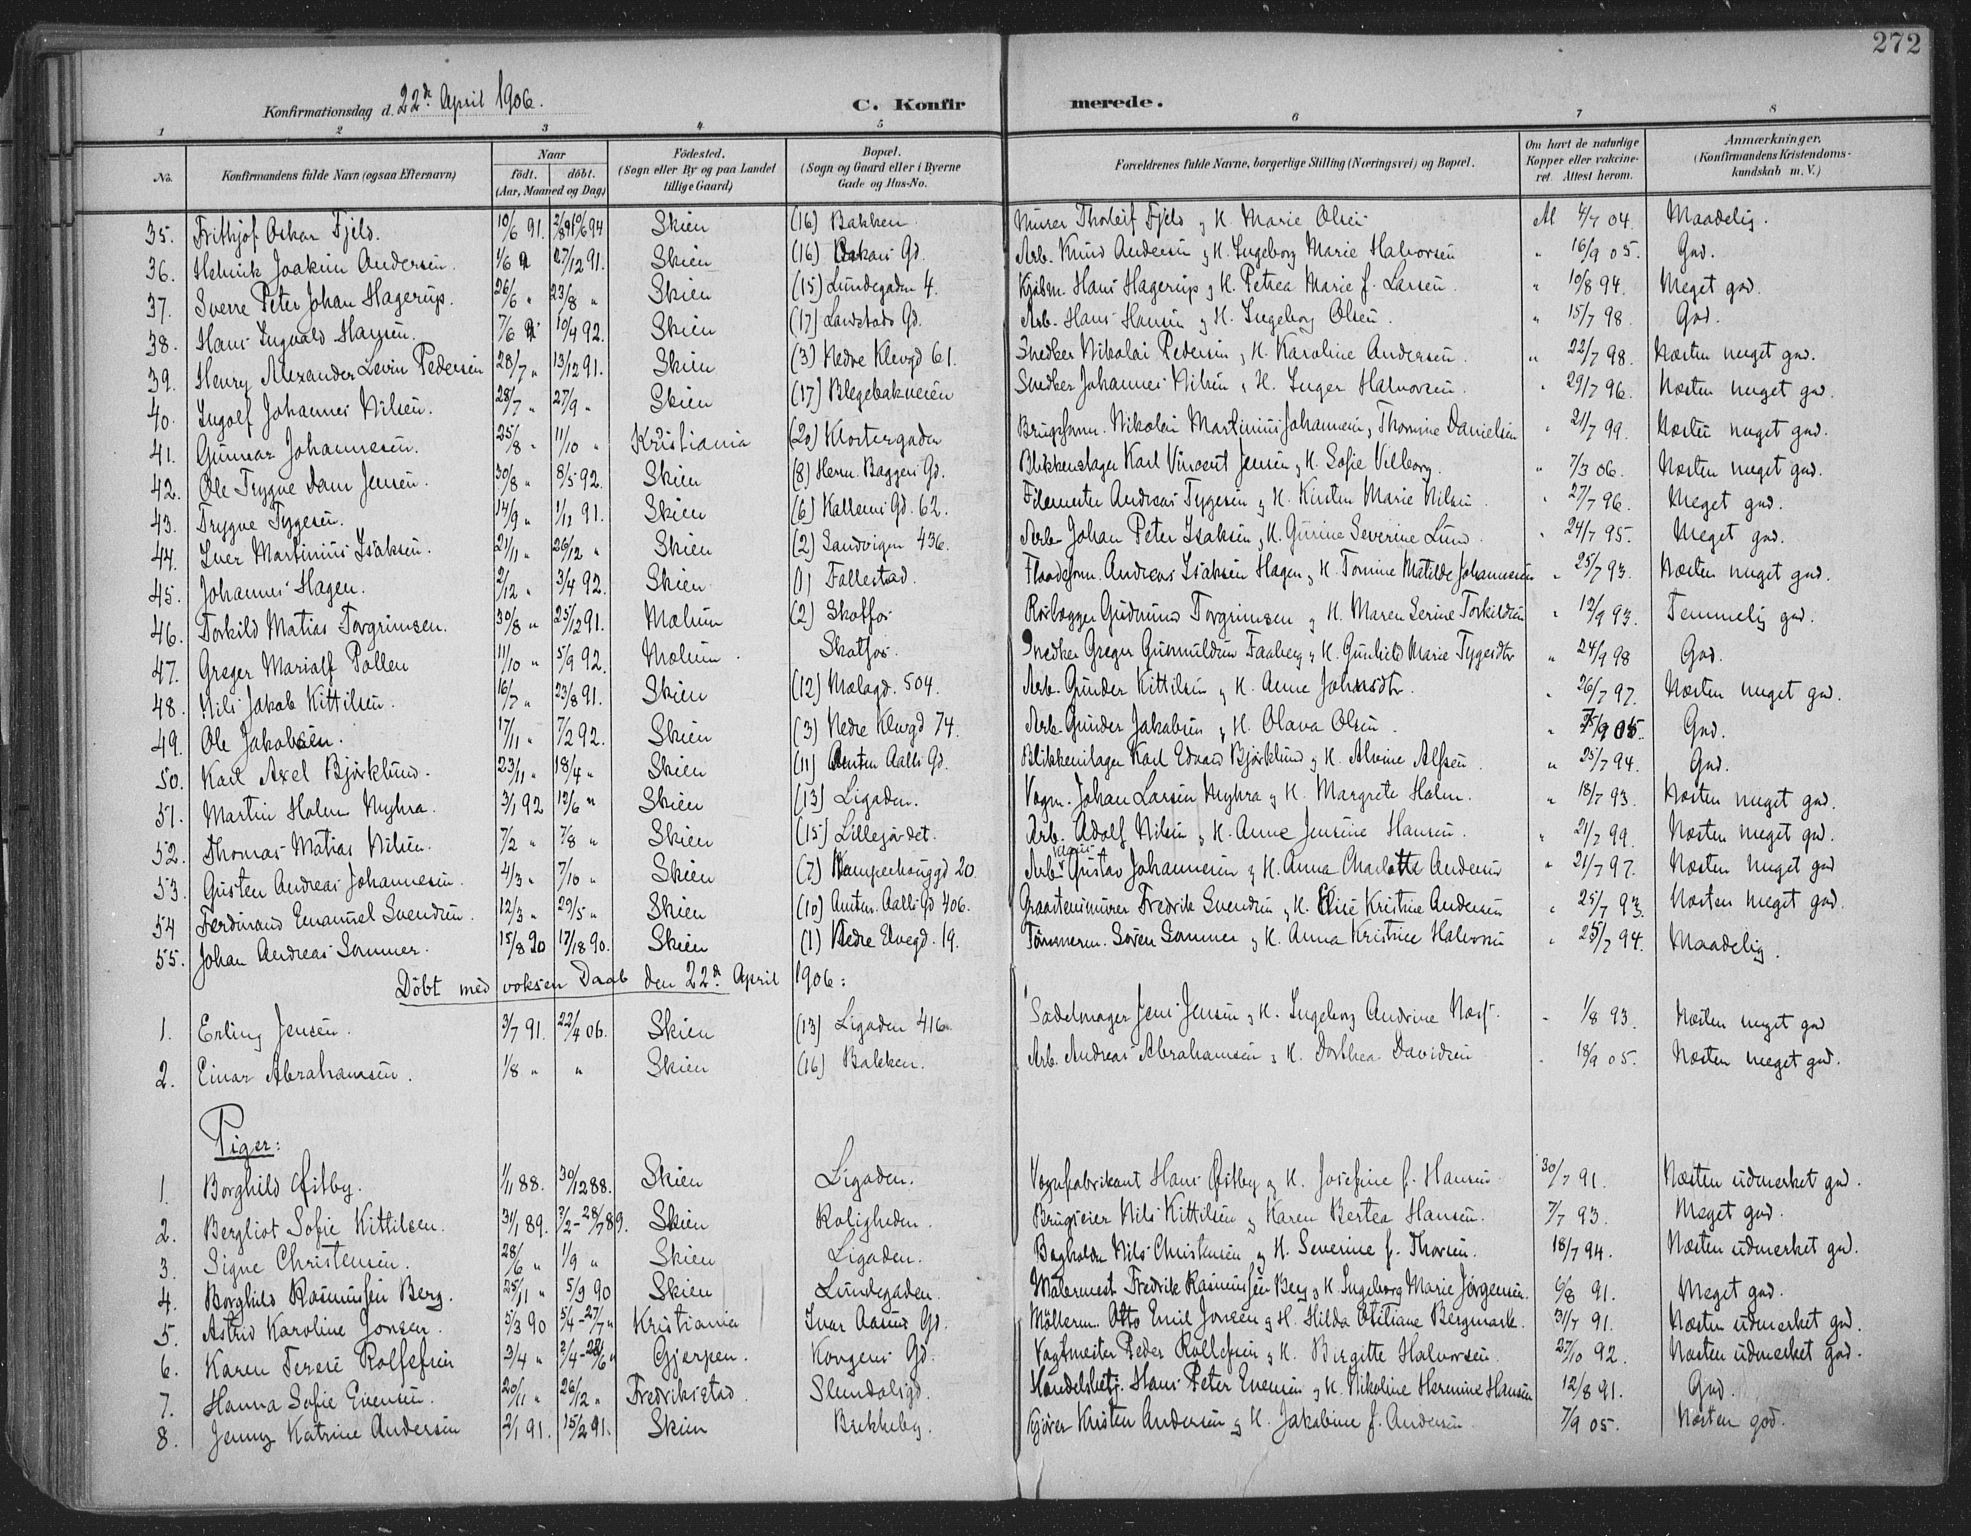 272
Konfirmationsdag d. 22de April 1906.
C. Konfirmerede.
1 2 3 4 5 6 7 8
No. Konfirmandens fulde Navn (ogsaa Efternavn) Naar födt. döbt. (Aar, Maaned og Dag) Födested. (Sogn eller By og paa Landet tillige Gaard) Bopæl. (Sogn og Gaard eller i Byerne Gade og Hus-No. Forældrenes fulde Navne, borgerlige Stilling (Næringsvei) og Bopæl. Om havt de naturlige Kopper eller vakcineret. Attest herom. Anmærkninger. (Konfirmandens Kristendomskundskab m. V.)
35. Frithjof Oskar Fjeld. 10/6 91. Skien (16) Bakken. Murer Thorleif Fjeld og H. Marie Olsen M 4/7 04. Maadelig.
36. Henrik Joakim Andersen. 1/6 27/12 91. Skien (16) Gd. Arb. Knud Andersen og H. Ingeborg Marie Halvorsen " 16/9 05. God.
37. Sverre Peter Johan Hagerup. 26/6 " 23/8 " Skien (15) Lundegaden 4. Kjøbm. Hans Hagerup og H. Petrea Marie f. Larsen. " 10/8 94. Meget god.
38. Hans Ingvald Hansen. 7/6 10/4 92. Skien (17) Landstads Gd. Arb. Hans Hansen og H. Ingeborg Olsen. " 15/7 98. God.
39. Henry Alexander Levin Pedersen 28/7 " 13/12 91. Skien (3) Nedre Elvegd 61. Snedker Nikolai Pedersen og H. Karoline Andersen. " 22/7 98. Næsten meget god.
40. Ingolf Johannes Nilsen. 28/7 " 27/9 " Skien (17) Blegebakveien Snedker Johannes Nilsen og H. Inger Halvorsen. " 29/7 96. Næsten meget god.
41. Gunnar Johannesen. 25/8 " 11/10 " Kristiania (20) Klostergaden Brugsform. Nikolai Martinius Johannesen og Thomine Danielsen " 21/7 99. Næsten meget god.
42. Ole Trygve Dam Jensen. 30/8 " 8/5 92. Skien (8) Herm. Baggers Gd. Blikkenslager Karl Vincent Jensen og H. Sofie Vilborg. " 7/3 06. Næsten meget god.
43. Trygve Tygesen. 14/9 " 1/12 91. Skien (6) Kallems Gd. 62. Filemester Andreas Tygesen og H. Kirsten Marie Nilsen " 27/7 96. Meget god.
44. Iver Martinius Isaksen. 21/11 " 26/12 " Skien (2) Sandvigen 436. Arb. Johan Peter Isaksen og H. Gurine Severine Lund. " 24/7 95. Meget god.
45. Johannes Hagen. 2/12 " 3/4 92. Skien (1) Follestad. Flaadeform. Andreas Isaksen Hagen og H. Tomine Matilde Johannesen " 25/7 93. Næsten meget god.
46. Torkild Matias Torgrimsen. 30/8 " 25/12 91. Melum (2) Skotfos Rørlægger Gudmund Torgrimsen og H. Maren Serine Torkildsen " 12/9 93. Temmelig god.
47. Greger Marialf Pollen 11/10 " 5/9 92. Melum. Skotfos. Snedker Greger Gunnuldsen Faaberg og H. Gunhild Marie Tygesdtr " 24/9 98 God.
48. Nils Jakob Kittilsen. 16/7 " 23/8 91. Skien (12) Mælagd. 504. Arb. Gunder Kittilsen og H. Anne Johnsdtr. " 26/7 97. Næsten meget god.
49. Ole Jakobsen. 17/11 " 7/2 92. Skien (3) Nedre Elvegd 74. Arb. Gunder Jakobsen og H. Olava Olsen " 05. God.
50. Karl Axel Bjørklund. 23/11 " 18/4 " Skien (11) Amtm Aalls Gd. Blikkenslager Karl Edvard Bjørklund og H. Alvine Alfsen " 25/7 94. God.
51. Martin Holm Myhra. 3/1 92 12/6 " Skien (13) Ligaden. Vogm. Johan Larsen Myhra og H. Margrete Holm. " 18/7 93. Næsten meget god.
52. Thomas Matias Nilsen. 7/2 " 7/8 " Skien (15) Lillejordet. Arb. Adolf Nilsen og H. Anne Jensine Hansen. " 21/7 99. Næsten meget god.
53. Gusten Andreas Johannesen. 4/3 " 7/10 " Skien (7) Kamperhouggd 20. Arb. Klaus Gustav Johannesen og H. Anna Charlotte Andersen " 21/7 97. Næsten meget god
54 Ferdinand Emanuel Svendsen. 12/3 " 29/5 " Skien (10) Amtm. Aalls Gd 406. Graastensmurer Fredrik Svendsen og H. Elise Kristine Andersen " 25/7 93. Næsten meget god.
55. Johan Andreas Sommer. 15/8 90 17/18 90. Skien (1) Nedre Elvegd. 19. Tømmerm. Søren Sommer og H. Anna Kristine Halvorsen " 25/7 94. Maadelig.
Døbt med voksen Daab den 22de April 1906:
1. Erling Jensen. 3/7 91. 22/4 06. Skien (13) Ligaden 416. Sadelmager Jens Jensen og H. Ingeborg Andrine Næs. " 1/8 93. Næsten meget god
2. Einar Abrahamsen. 1/8 " " Skien (16) Bakken. Arb. Andreas Abrahamsen og H. Dorthea Davidsen " 18/9 05. Næsten meget god.
Piger:
1. Borghild Østby. 1/11 88. 30/12 88. Skien Ligaden. Vognfabrikant Hans Østby og H. Josefine f. Hansen. 30/7 91. Næsten udmerket god.
2. Bergliot Sofie Kittilsen. 31/1 89. 2/2-28/7 89. Skien Roligheden. Brugseier Nils Kittilsen og Karen Bertea Hansen. 7/7 93. Meget god.
3. Signe Christensen. 28/6 " 1/9 " Skien Ligaden. Bogholder Nils Christensen og H. Severine f. Thorsen. 18/7 94. Næsten udmerket god.
4. Borghild Rasmussen Berg. 25/11 " 5/9 90 Skien Lundegaden. Malermest Fredrik Rasmussen Berg og H. Ingeborg Marie Jørgensen. 6/8 91. Meget god.
5. Astrid Karoline Jonsen. 5/3 90 5/4-27/7 " Kristiania Ivar Aasens Gd. Møllerm. Otto Emil Jonsen og H. Hilda Otiliane Bergmark. 31/7 91. Næsten udmerket god.
6. Karen Terese Rollefsen 3/4 " 2/4-28/6 " Gjerpen. Kongens Gd. Vagtmester Peder Rollefsen og H. Birgitte Halvorsen. 27/10 92. Næsten udmerket god.
7. Hanna Sofie Evensen. 20/11 " 26/12 " Fredrikstad. Slemdalsgd. Handelsbetj. Hans Peter Evensen og H. Nikoline Hermine Hansen 12/8 91. God.
8. Jenny Katrine Andersen 2/1 91. 15/2 91. Skien Brekkeby. Kjører Kristen Andersen og H. Jakobine f. Andersen. 7/9 05. Næsten god.